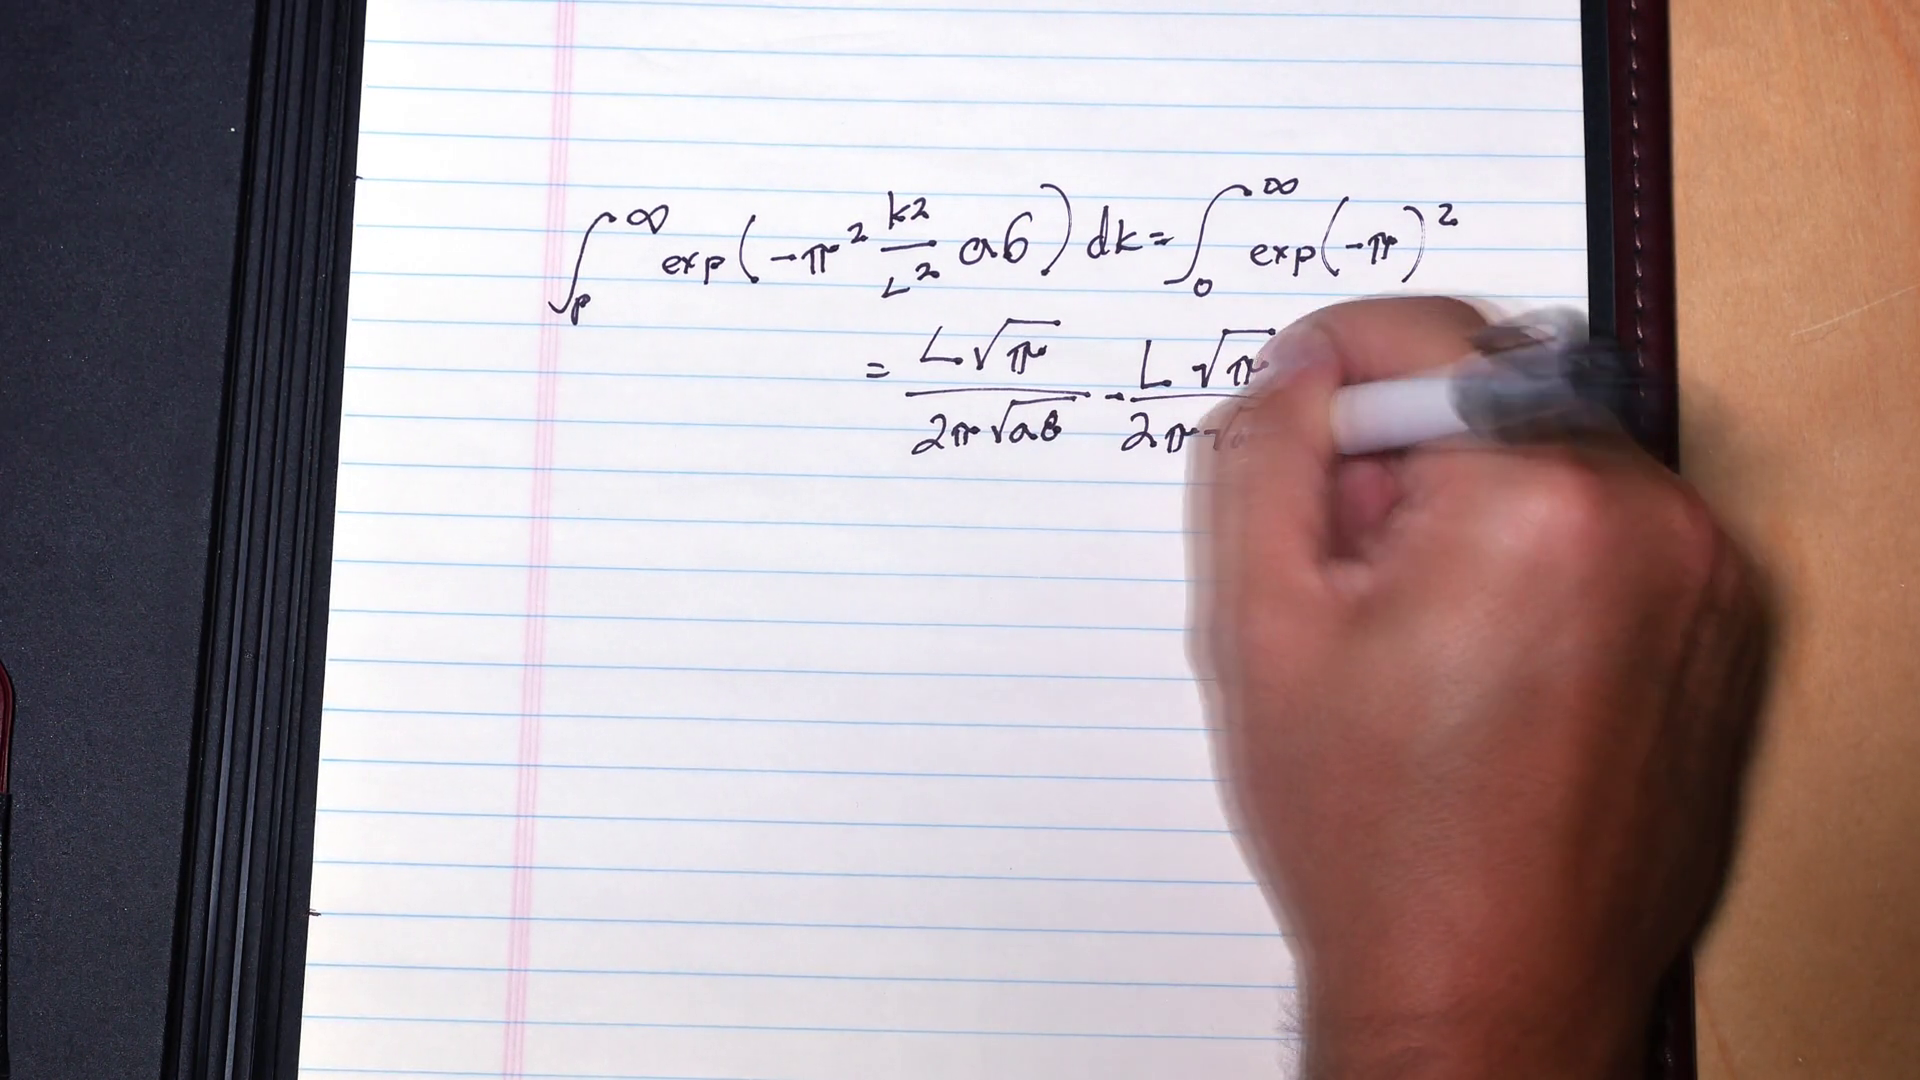 ∫_p^∞ exp(-π² k2/L² ab) dk = ∫_0^∞ exp(-π)²
= L√π / 2π√ab - L√π / 2π√